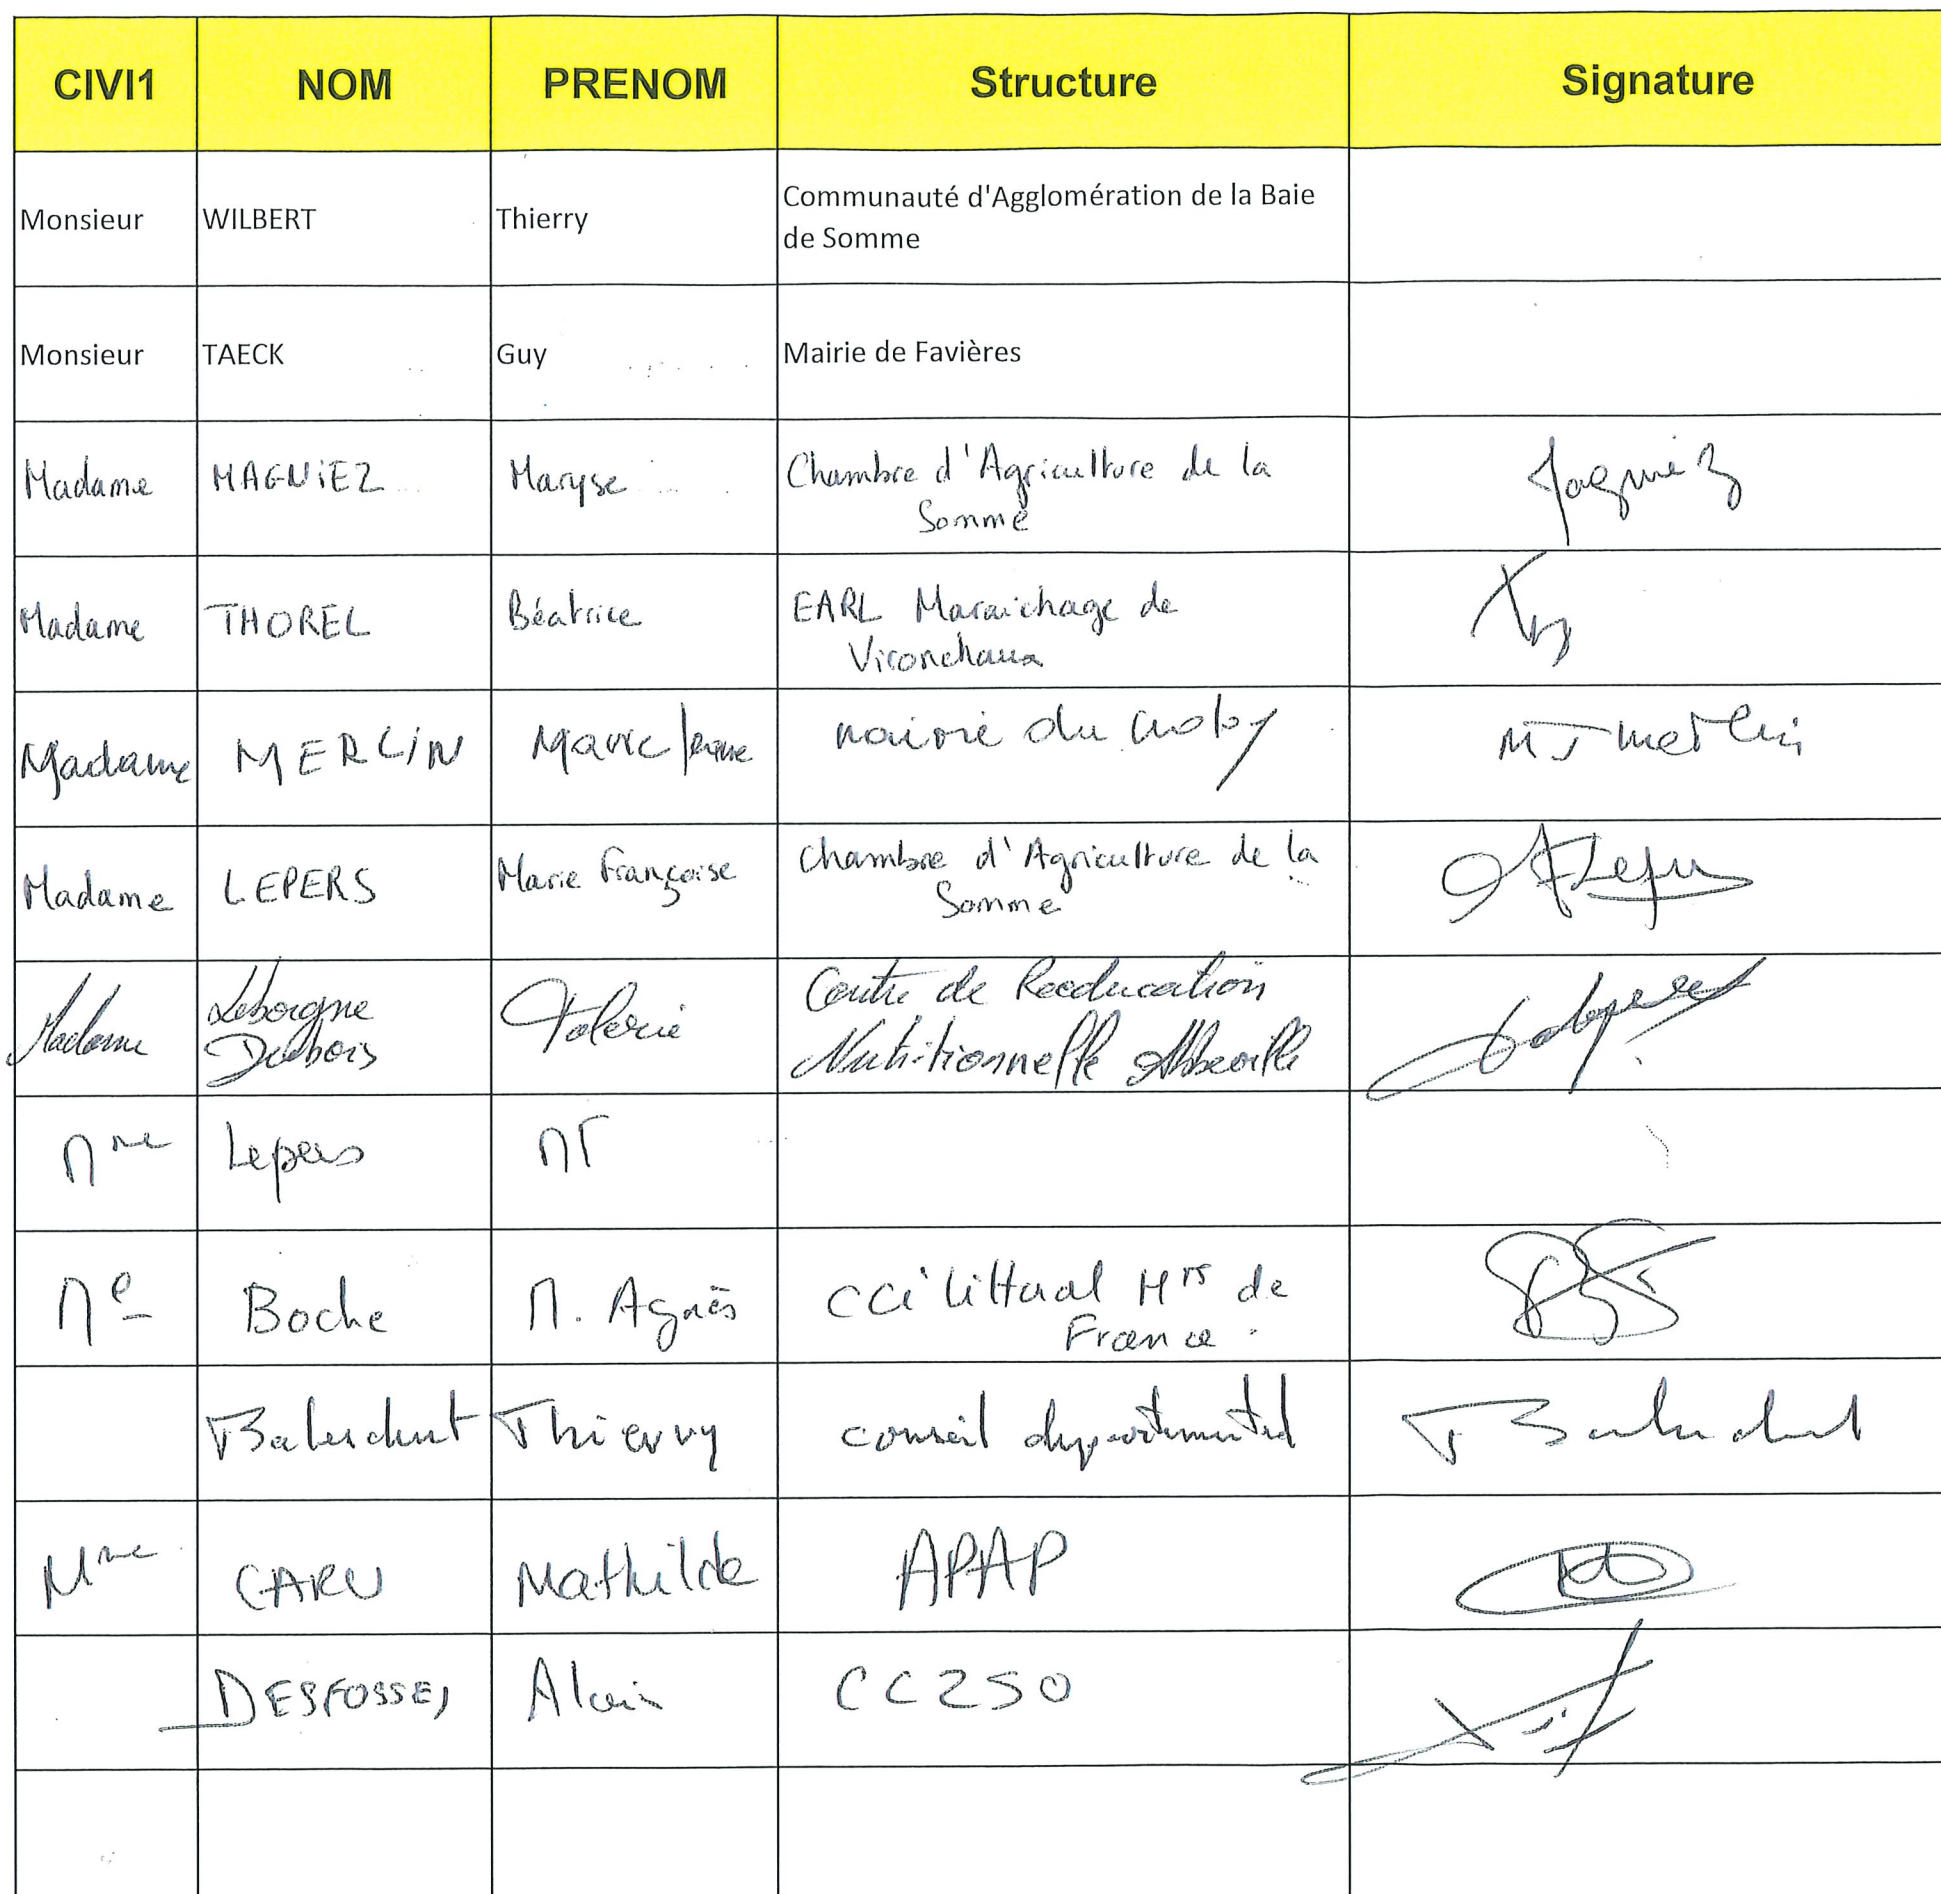 CIVI1 NOM PRENOM Structure Signature
Monsieur WILBERT Thierry Communauté d'Agglomération de la Baie
de Somme
Monsieur TAECK Guy Mairie de Favières
Madame MAGNiEZ Maryse Chambre d'Agriculture de la
Somme
Magniez
Madame THOREL Béatrice EARL Maraichage de
Vironchaux
Madame MERLiN Marie Jeanne mairie du Crotoy MJ Merlin
Madame LEPERS Marie Françoise Chambre d'Agriculture de la
Somme
MFLepers
Madame Leborgne
Dubois
Valerie Centre de Reeducation
Nutritionnelle Abbeville
Mme Lepers MF
Me Boche M. Agnès CCi littoral Hts de
France
Balesdent Thierry conseil departemental T Balesdent
Mme CARU Mathilde APAP
DESFOSSES Alain CC2SO